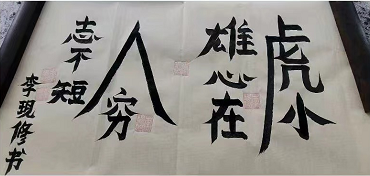 虎小
雄心在
人穷
志不短
李現修书